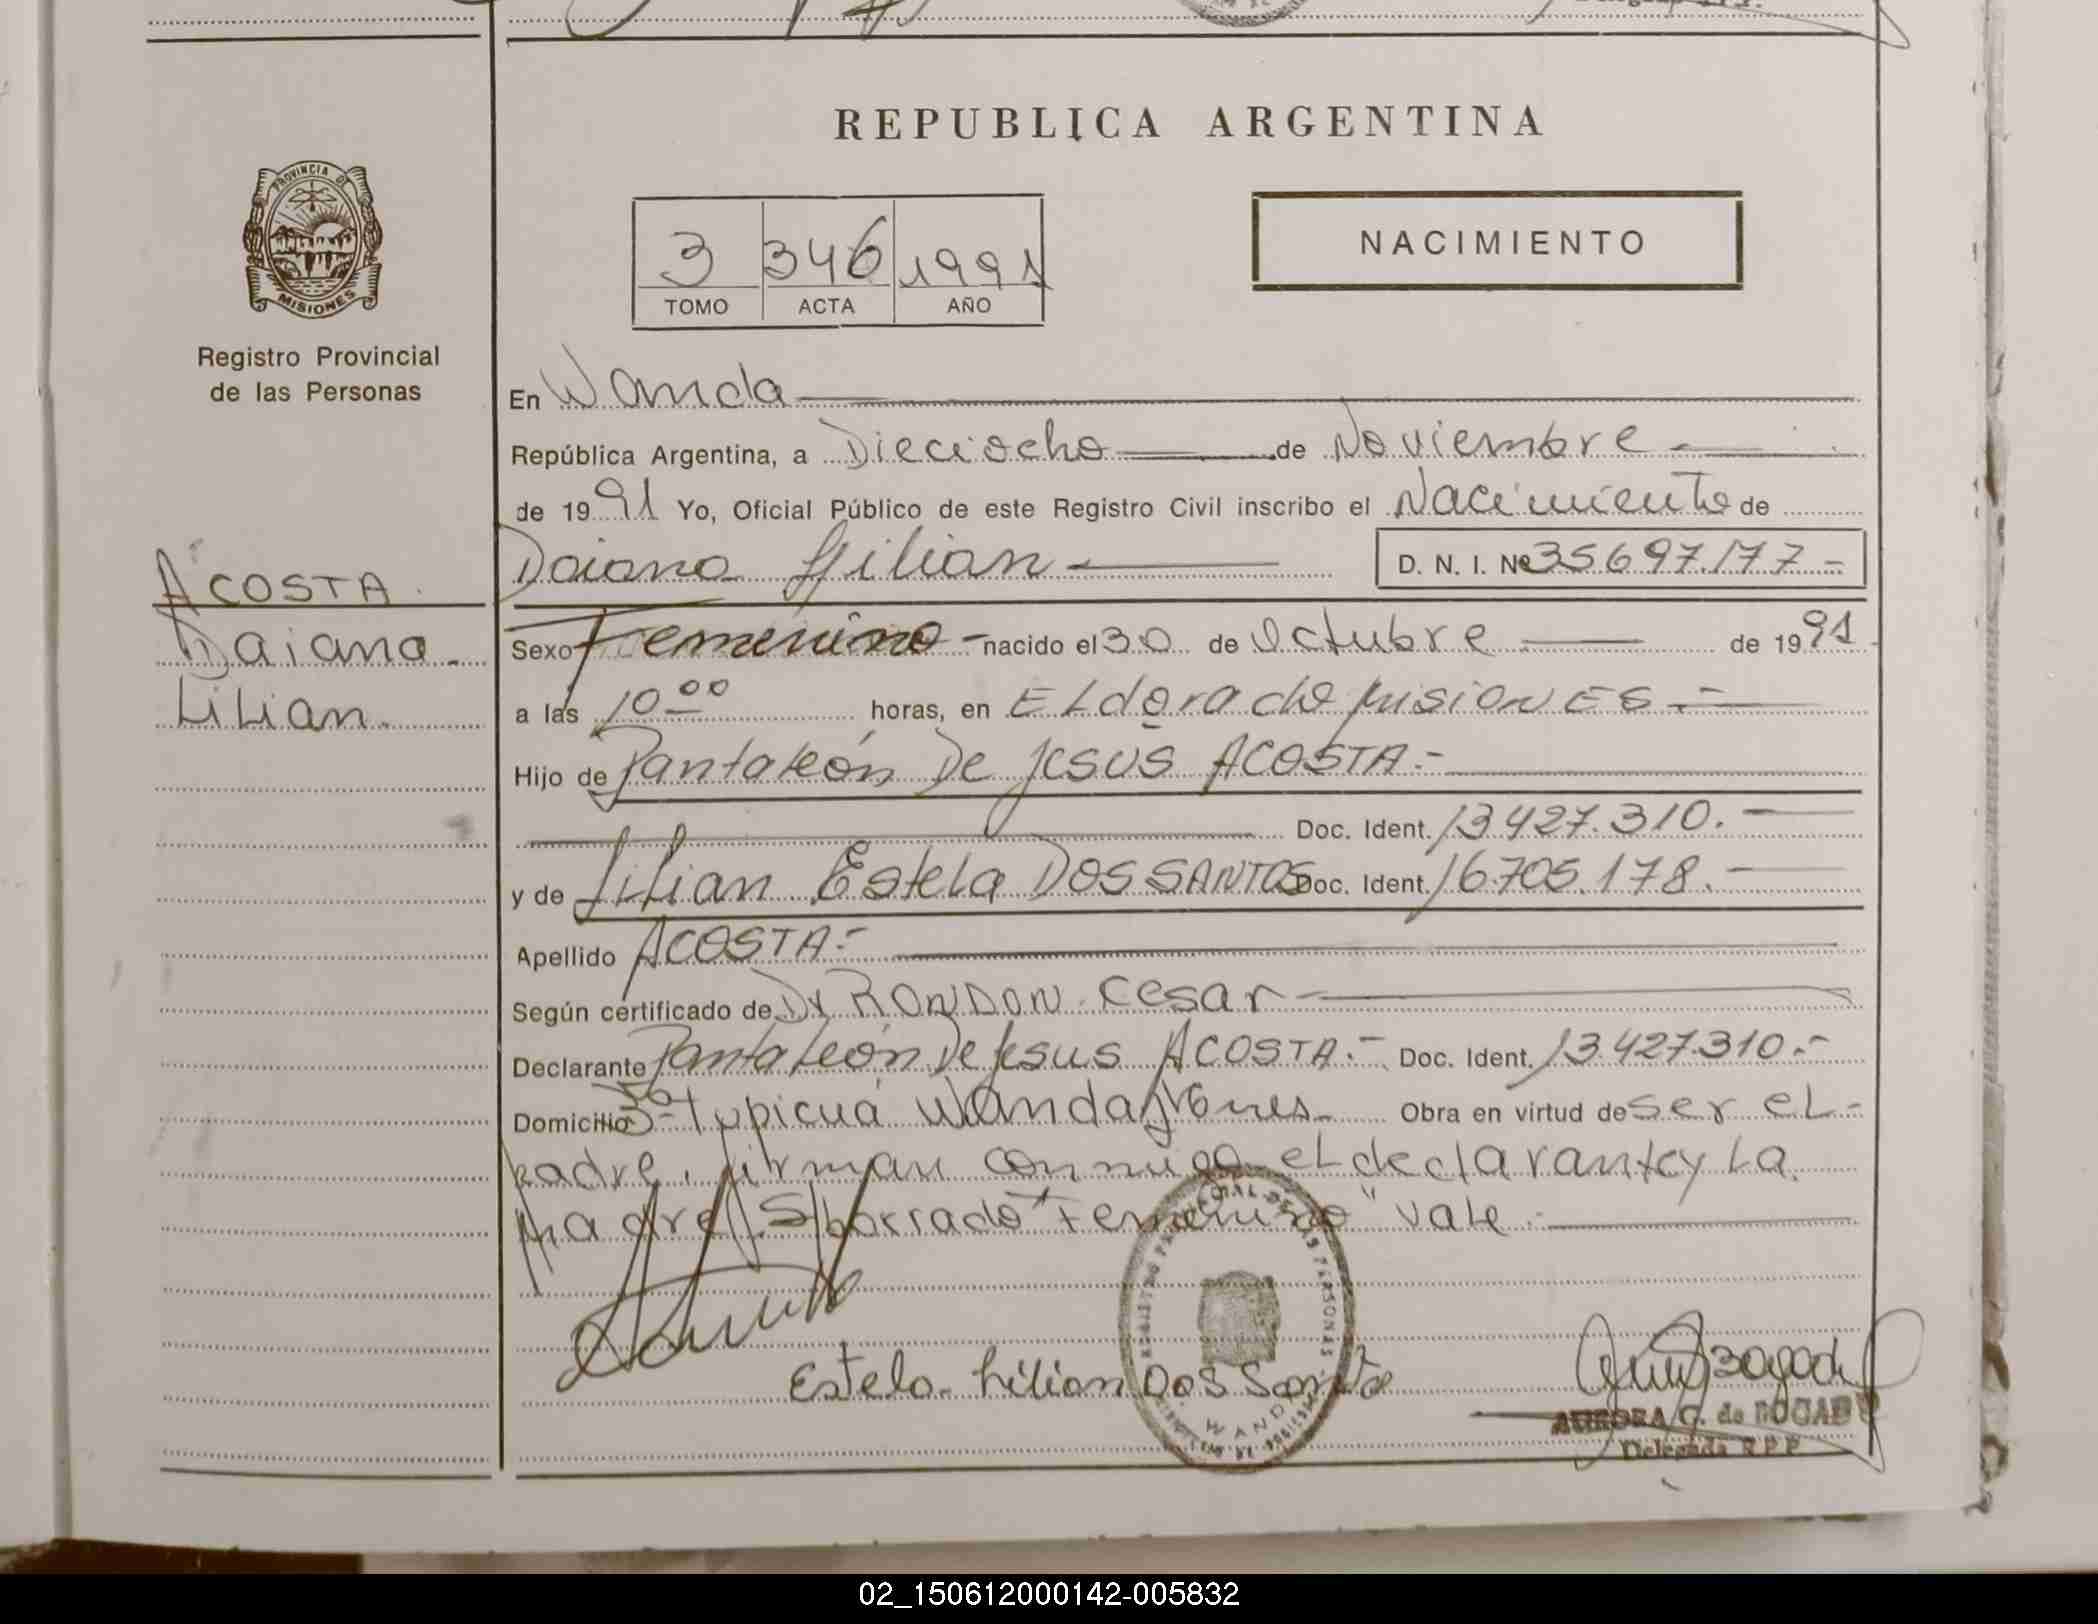 REPUBLICA ARGENTINA
PROVINCIA DE
MISIONES
Registro Provincial
de las Personas
3 346 1991
TOMO ACTA AÑO
NACIMIENTO
En Wanda
República Argentina, a Dieciocho de Noviembre
de 1991 Yo, Oficial Público de este Registro Civil inscribo el Nacimiento de
Daiana Lilian D. N. I. Nº 35697.177-
ACOSTA.
Daiana
Lilian.
Sexo Femenino - nacido el 30 de Octubre de 1991
a las 10 00 horas, en ELdorado Misiones
Hijo de Pantaleón De Jesús ACOSTA.-
Doc. Ident. 13.427.310.-
y de Lilian Estela DOS SANTOS Doc. Ident. 16.705.178.-
Apellido ACOSTA.-
Según certificado de Dr RONDON Cesar
Declarante Pantaleón De Jesus ACOSTA.- Doc. Ident. 13.427.310.-
Domicilio Tupicuá Wanda Obra en virtud de ser el
padre, firman conmigo el declarante y La
Madre. S/borrado "Femenino" Vale.
Estela Lilian Dos Santos
WANDA
AURORA G. de BOGADO
Delegada R.P.P.
02_150612000142-005832